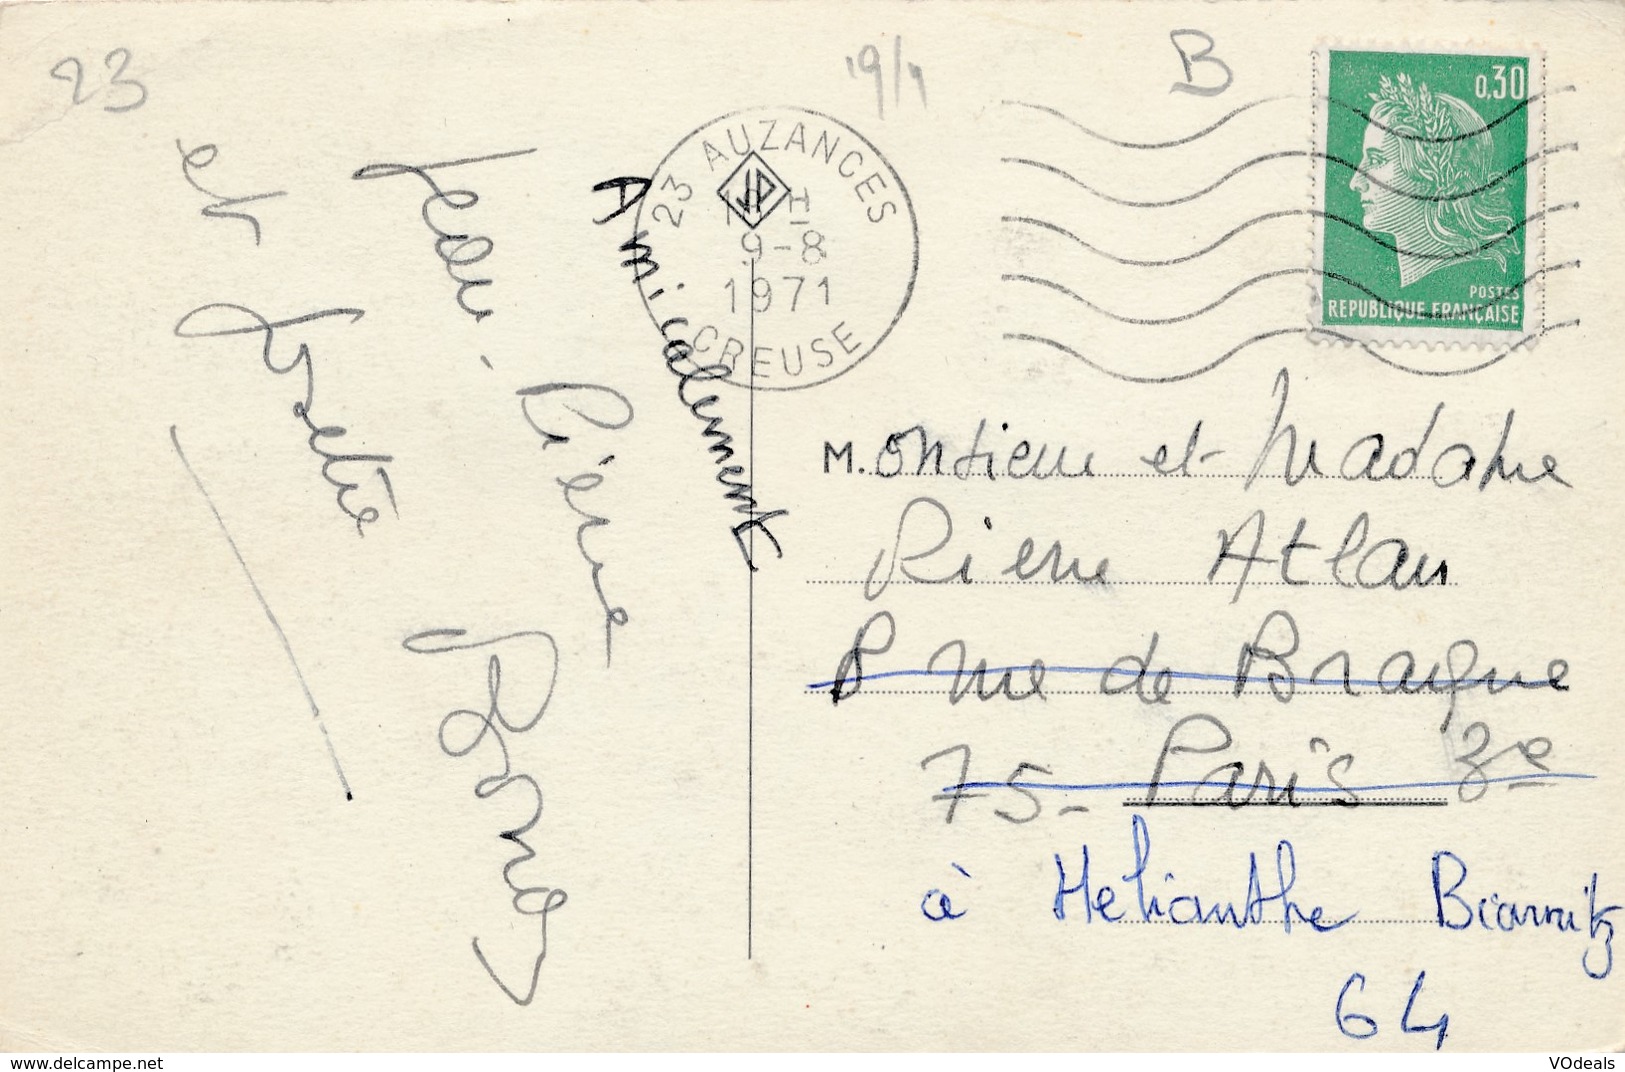 23
19/
B
0,30
POSTES
REPUBLIQUE FRANÇAISE
23 AUZANCES
H
9-8
1971
CREUSE
Amicalement
Pierre
et
Monsieur et Madame
Pierre Atlan
8 rue de Braque
75 - Paris 3e
à Helianthe Biarritz
64
VOdeals
http://www.delcampe.net